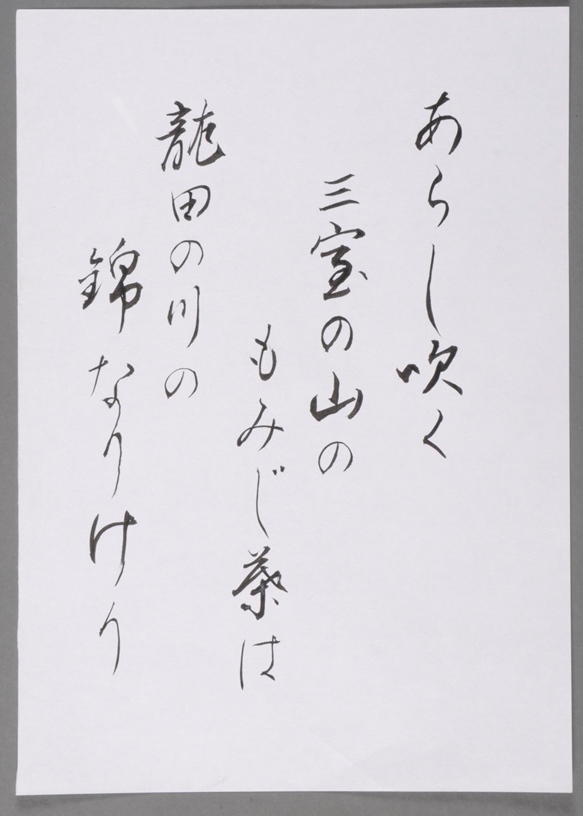 あらし吹く
三室の山の
もみじ葉は
龍田の川の
錦なりけり